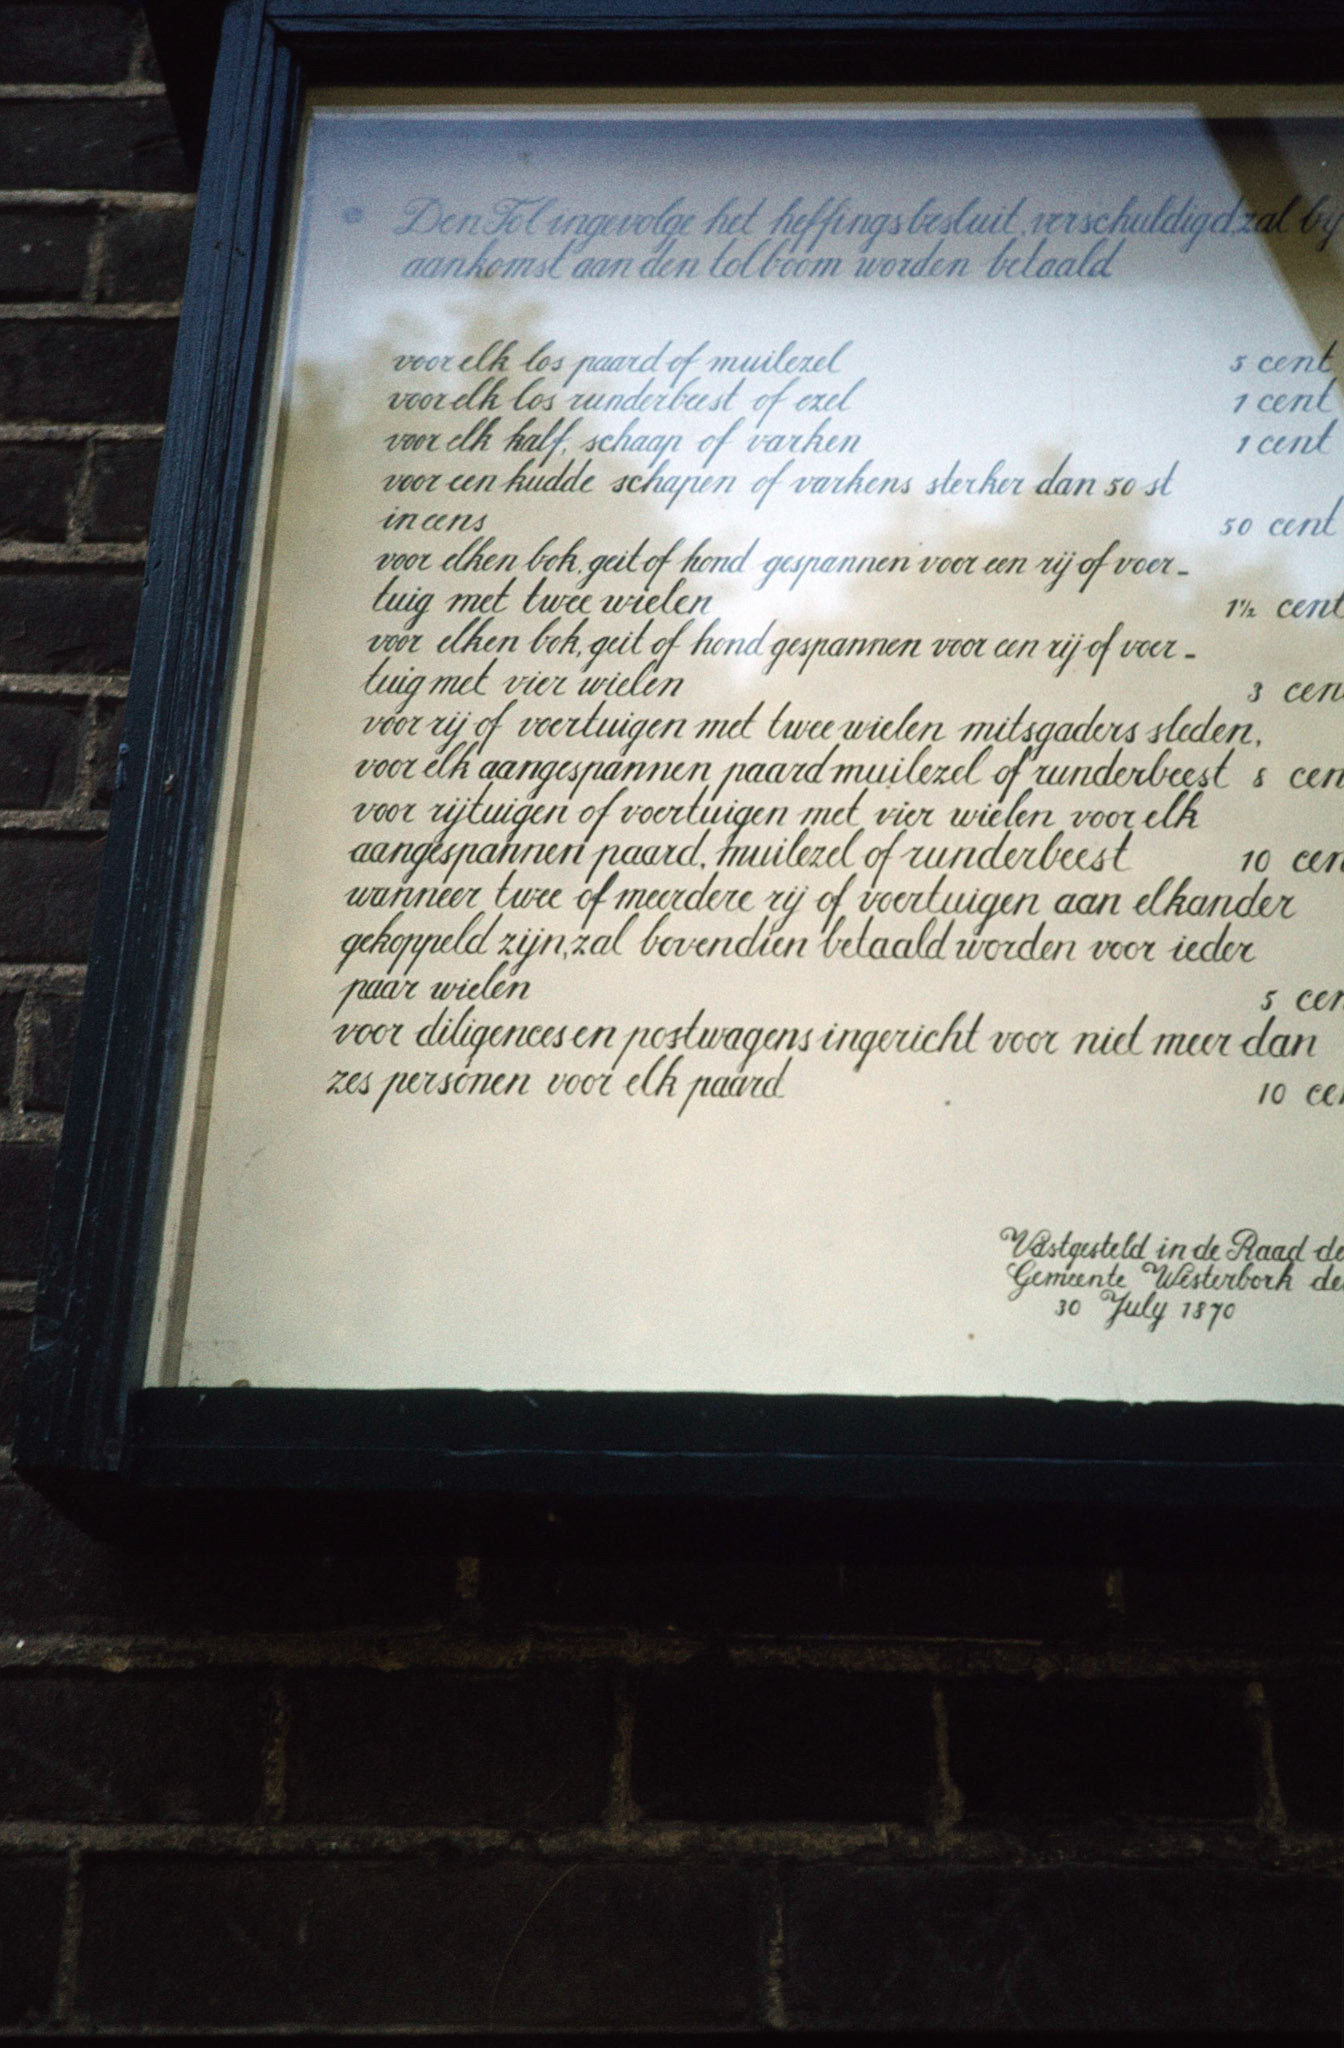 Den Tol ingevolge het heffingsbesluit, verschuldigd zal by
aankomst aan den tolboom worden betaald
voor elk los paard of muilezel 5 cent
voor elk los runderbeest of ezel 1 cent
voor elk kalf, schaap of varken 1 cent
voor een kudde schapen of varkens sterker dan 50 st
in eens 50 cent
voor elken bok, geit of hond gespannen voor een rij of voer-
tuig met twee wielen 1½ cent
voor elken bok, geit of hond gespannen voor een rij of voer-
tuig met vier wielen 3 cen
voor rij of voertuigen met twee wielen mitsgaders sleden,
voor elk aangespannen paard muilezel of runderbeest 5 cen
voor rijtuigen of voertuigen met vier wielen voor elk
aangespannen paard, muilezel of runderbeest 10 cen
wanneer twee of meerdere rij of voertuigen aan elkander
gekoppeld zijn, zal bovendien betaald worden voor ieder
paar wielen 5 cen
voor diligences en postwagens ingericht voor niet meer dan
zes personen voor elk paard 10 ce
Vastgesteld in de Raad de
Gemeente Westerbork de
30 July 1870